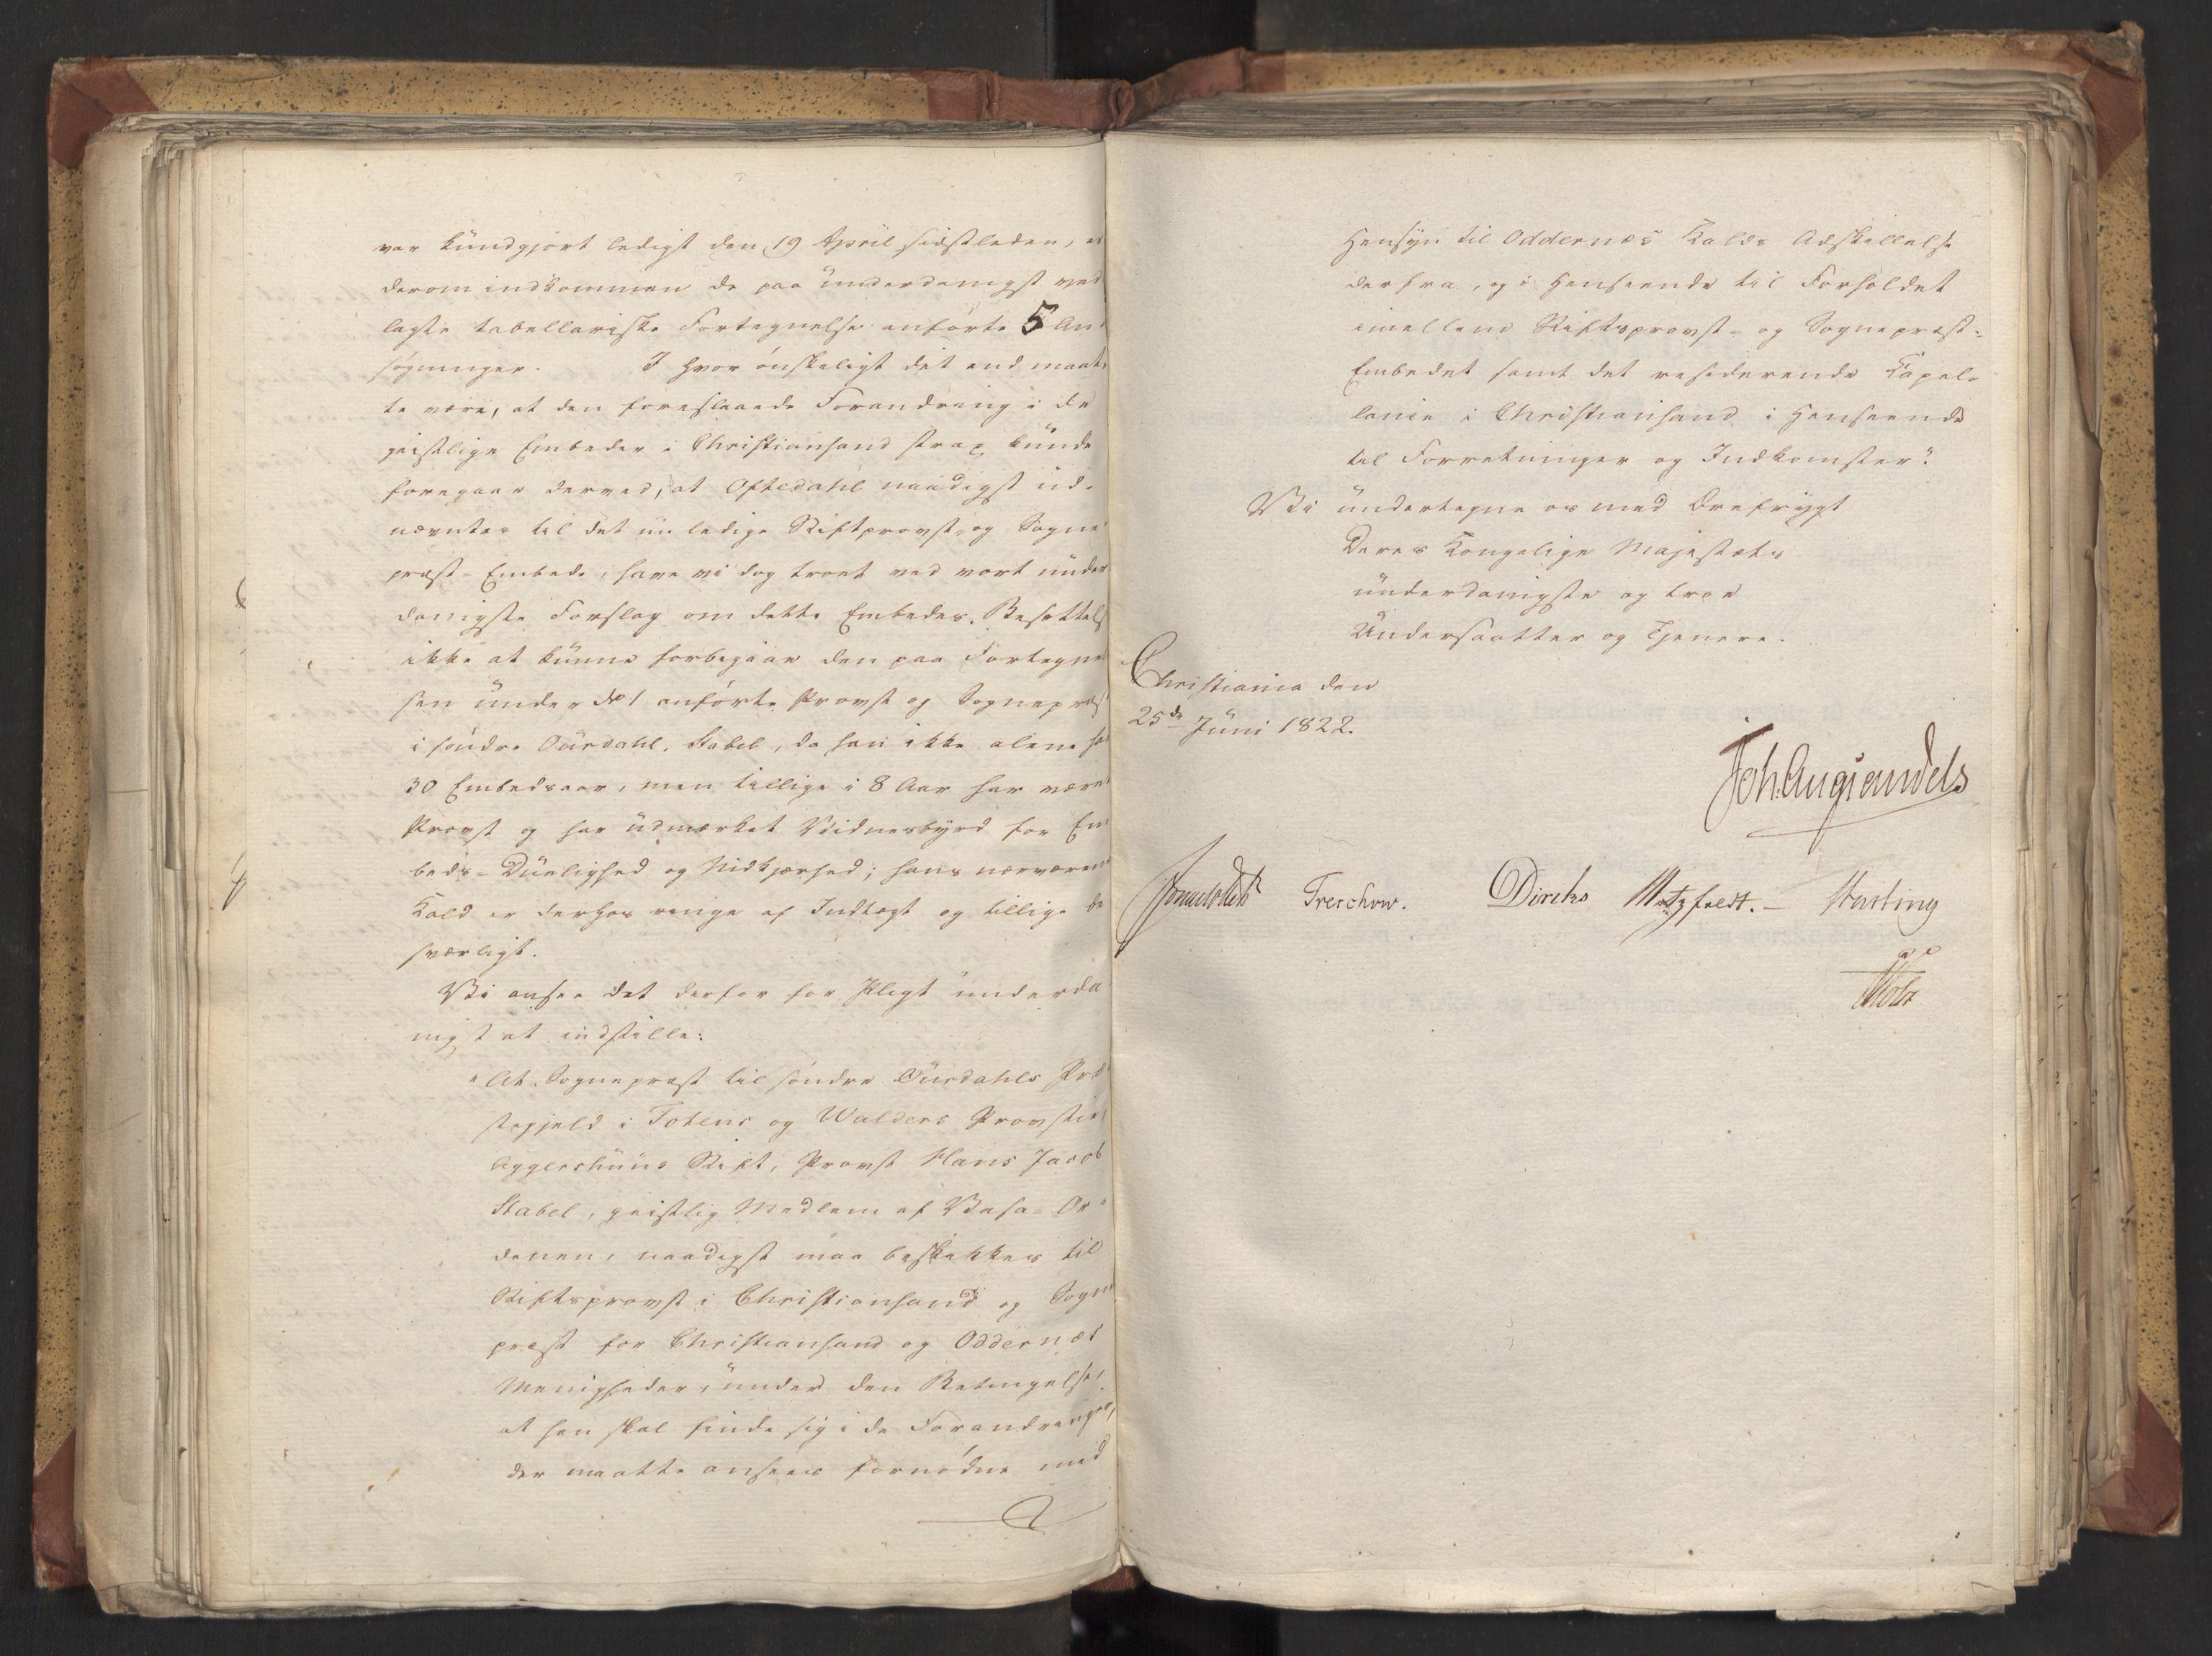 var kundgjort ledigt den 19 April sidstleden, er
derom indkommen de paa underdanigst ved
lagte tabellariske Fortegnelse anførte 5 An-
søgninger. I hvor ønskeligt det end maat-
te være, at den foreslaaede Forandring i de
geistlige Embeder i Christiansand strax kunde
foregaae derved, at Oftedahl naadigst ud-
nævntes til det nu ledige Stiftprovst- og Sogne-
præst-Embede, have vi dog troet ved vort under
danigste Forslag om dette Embedes Besættelse
ikke at kunne forbigaae den paa Fortegnel
sen under No 1 anførte Provst og Sognepræst
i søndre Ourdahl, Stabel, da han ikke alene har
30 Embedsaar, men tillige i 8 Aar har været
Provst og har udmærket Vidnesbyrd for Em
beds-Duelighed og Nidkjærhed; hans nærværende
Kald er derhos ringe af Indtægt og tillige be
sværligt.
Vi ansee det derfor for Pligt underda
nigst at indstille:
"At Sognepræst til søndre Ourdahls Præ
stegjeld i Totens og Walders Provstie
Aggershuus Stift, Provst Hans Jacob
Stabel, geistlig Medlem af Vasa-Or-
denen, naadigst maa beskikkes til
Stiftsprovst i Christiansand og Sogne
præst for Christiansand og Oddernæs
Menigheder, under den Betingelse,
at han skal finde sig i de Forandringer,
der maatte ansees fornødne med
Hensyn til Oddernæs Kalds Adskillelse
derfra, og i Henseende til Forholdet
imellem Stiftsprovst- og Sognepræst-
Embedet samt det residerende Kapel-
lanie i Christiansand i Henseende
til Forretninger og Indkomster."
Vi undertegne os med Ærefrygt
Deres Kongelige Majestæts
underdanigste og troe
Undersaatter og Tjenere.
Christiania den
25de Juni 1822.
Joh. Aug Sandels
Sommerhielm Treschow. Diriks Motzfeldt. Fasting
Holst